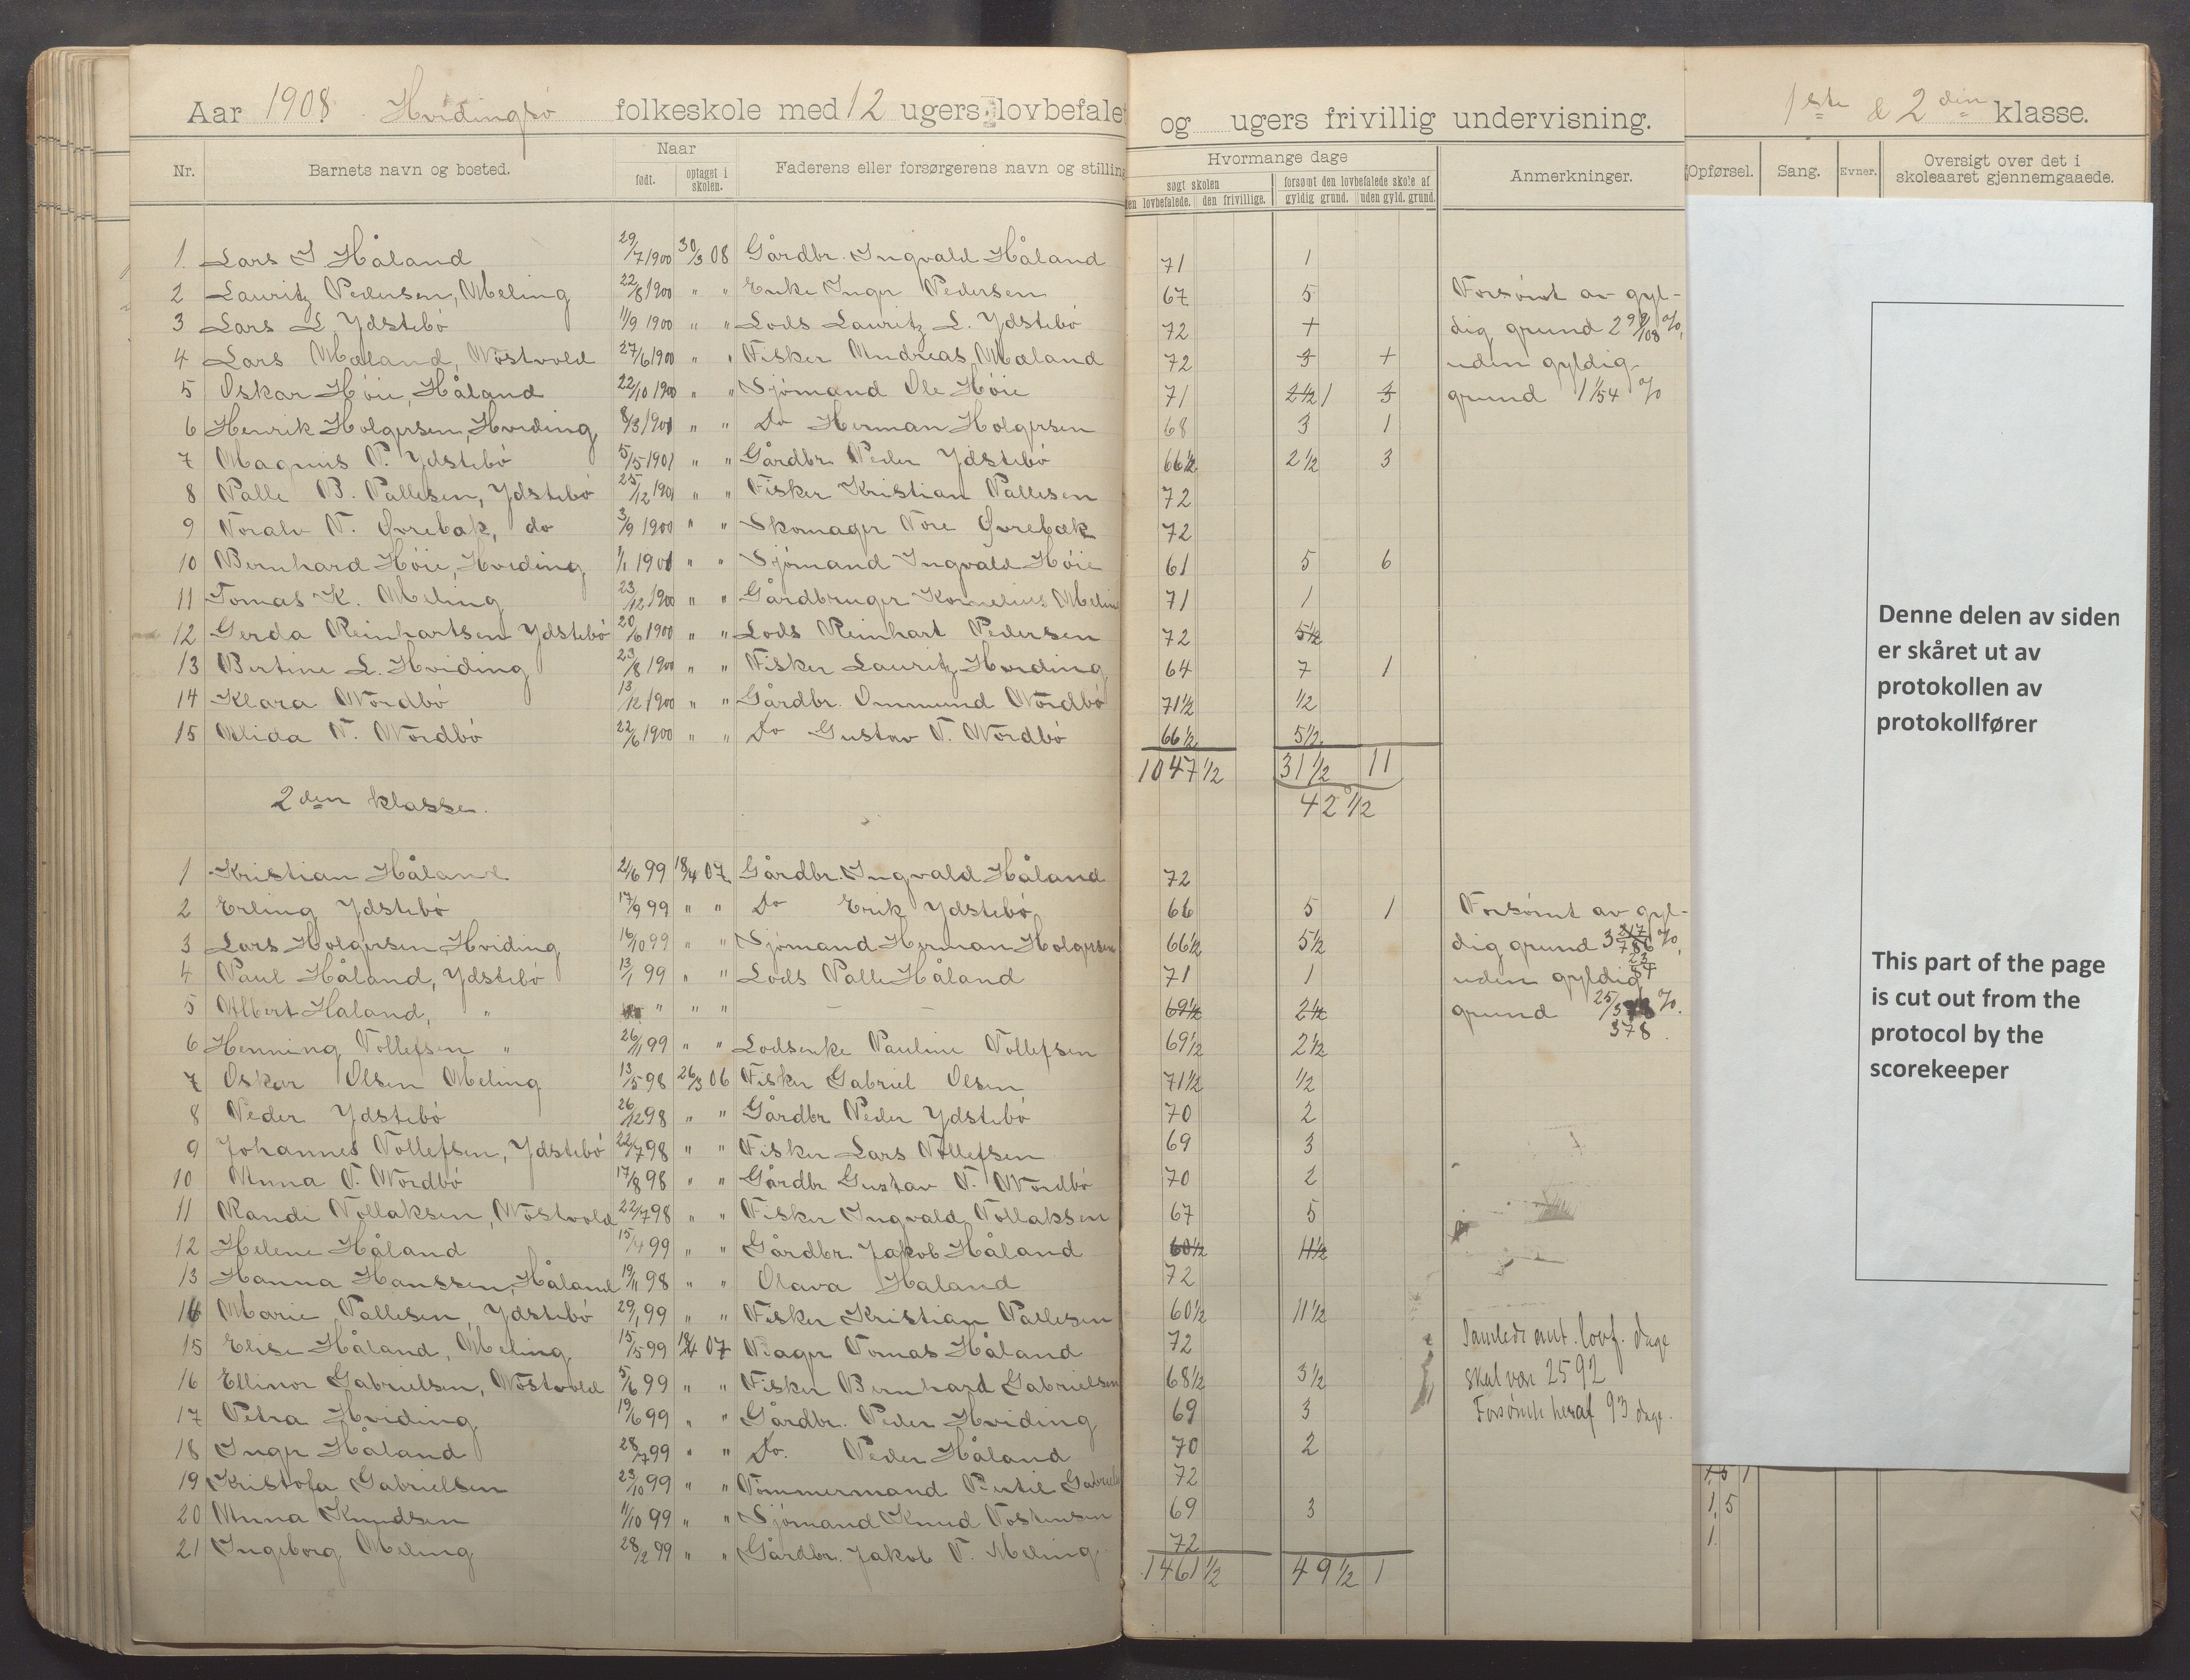 Aar 1908. Hvidingsö folkeskole med 12 ugers lovbefalet og ugers frivillig undervisning. 1ste & 2den klasse.
Nr. Barnets navn og bosted. Naar Faderens eller forsørgerens navn og stilling Hvormange dage Anmerkninger. Opførsel. Sang. Evner. Oversigt over det i skoleaaret gjennemgaaede.
født. optaget i skolen. søgt skolen forsømt den lovbefalede skole af
den lovbefalede. den frivillige. gyldig grund. uden gyld. grund.
1. Lars I. Håland 29/7 1900 30/3 08 Gårdbr. Ingvald Håland 71 1
2 Lauritz Pedersen, Meling 22/8 1900 " " Enke Inger Pedersen 67 5 Forsömt av gyl-
3 Lars L. Ydstebö 11/9 1900 " " Lods Lauritz L. Ydstebö 72 dig grund 2 99/108 %,
4 Lars Mæland, Nöstvold 27/6 1900 " " Fisker Andreas Mæland 72 uden gyldig
5 Oskar Höie, Håland 22/10 1900 " " Sjömand Ole Höie 71 2 1/2 1 3 grund 1 1/54 %
6 Henrik Holgersen, Hviding 8/3 1901 " " Do Herman Holgersen 68 3 1
7 Magnus P. Ydstebö 5/5 1901 " " Gårdbr. Peder Ydstebö 66 1/2 2 1/2 3
8 Palle B. Pallesen, Ydstebö 25/12 1901 " " Fisker Kristian Pallesen 72
9 Toralv T. Øvrebæk, do 3/9 1900 " " Skomager Tore Øvrebæk 72
10 Bernhard Höie, Hviding 1/1 1901 " " Sjömand Ingvald Höie 61 5 6
11 Tomas K. Meling 23/12 1900 " " Gårdbruger Kornelius Meling 71 1
12 Gerda Reinhartsen Ydstebö 20/6 1900 " " Lods Reinhart Pedersen 72 5 1/2
13 Bertine L. Hviding 23/8 1900 " " Fisker Lauritz Hviding 64 7 1
14 Klara Nordbö 13/12 1900 " " Gårdbr. Ommund Nordbö 71 1/2 1/2
15 Alida T. Nordbö 22/6 1900 " " Do Gustav T. Nordbö 66 1/2 5 1/2
1047 1/2 31 1/2 11
2den klasse. 42 1/2
1 Kristian Håland 21/6 99 18/4 07 Gårdbr. Ingvald Håland 72
2 Erling Ydstebö 17/9 99 " " Do Erik Ydstebö 66 5 1 Forsömt av gyl-
3 Lars Holgersen Hviding 16/10 99 " " Sjömand Herman Holgersen 66 1/2 5 1/2 dig grund 3 217/756 %,
4 Paul Håland, Ydstebö 13/1 99 " " Lods Palle Håland 71 1 uden gyldig
5 Albert Håland, " " " " 69 1/2 2 1/2 grund 25/378 %.
6 Henning Tollefsen " 26/11 99 " " Lodsenke Pauline Tollefsen 69 1/2 2 1/2 378
7 Oskar Olsen Meling 13/5 98 26/3 06 Fisker Gabriel Olsen 71 1/2 1/2
8 Peder Ydstebö 26/12 98 " " Gårdbr Peder Ydstebö 70 2
9 Johannes Tollefsen, Ydstebö 22/7 98 " " Fisker Lars Tollefsen 69 3
10 Anna T. Nordbö 17/8 98 " " Gårdbr Gustav T. Nordbö 70 2
11 Randi Tollaksen, Nöstvold 22/7 98 " " Fisker Ingvald Tollaksen 67 5
12 Helene Håland 15/4 99 " " Gårdbr. Jakob Håland 60 1/2 11 1/2
13 Hanna Hanssen, Håland 19/11 98 " " Olava Håland 72
14 Marie Pallesen, Ydstebö 29/1 99 " " Fisker Kristian Pallesen 60 1/2 11 1/2
15 Elise Håland, Meling 15/5 99 18/4 07 Bager Tomas Håland 72 Samlede ant. lovf. dage
16 Ellinor Gabrielsen, Nöstvold 5/6 99 " " Fisker Bernhard Gabrielsen 68 1/2 3 1/2 skal være 2592
17 Petra Hviding 19/6 99 " " Gårdbr. Peder Hviding 69 3 Forsömte heraf 93 dage.
18 Inger Håland 28/7 99 " " Do. Peder Håland 70 2
19 Kristofa Gabrielsen 23/10 99 " " Tömmermand Bertil Gabrielsen 72
20 Anna Knudsen 11/10 99 " " Sjömand Knud Tostensen 69 3 1,5
21 Ingeborg Meling 28/2 99 " " Gårdbr. Jakob T. Meling 72 1
1461 1/2 49 1/2 1
Denne delen av siden
er skåret ut av
protokollen av
protokollfører
This part of the page
is cut out from the
protocol by the
scorekeeper